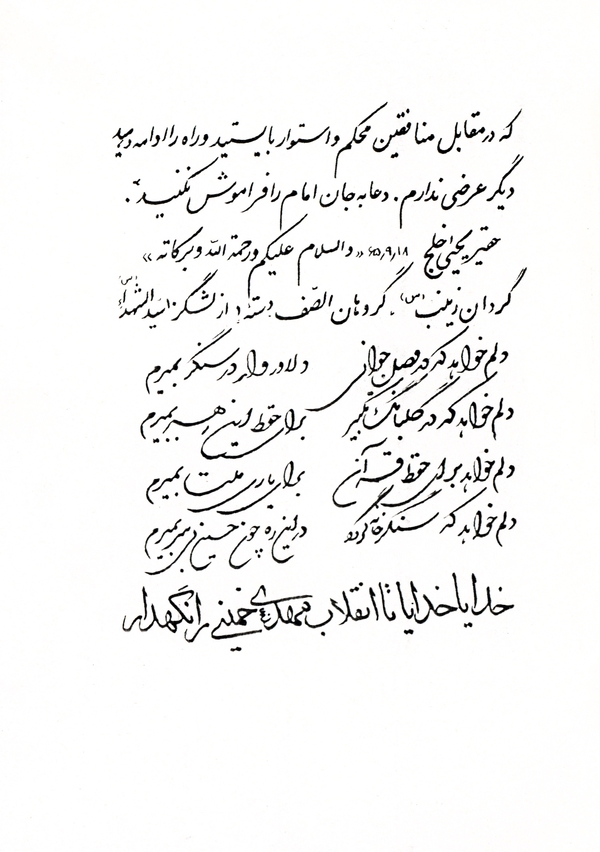 که در مقابل منافقین محکم و استوار بایستید و راه را ادامه دهید
دیگر عرضی ندارم. دعا به جان امام را فراموش نکنید.
حقیر یحیی اخلج ۶۵٫۹٫۱۸ «والسلام علیکم ورحمة الله وبرکاته»
گردان زینب (س) گروهان الصّف دستهٔ ۱ از لشگر ۱۰ سید الشهداء (س)
دلم خواهد که در فصل جوانی دلاور وار در سنگر بمیرم
دلم خواهد که در گلبانگ تکبیر برای حفظ این بمیرم
دلم خواهد برای حفظ قرآن برای یاری ملت بمیرم
دلم خواهد که سنگر خانه گردد در این ره چون حسین بی سر بمیرم
خدایا خدایا تا انقلاب مهدی خمینی را نگهدار